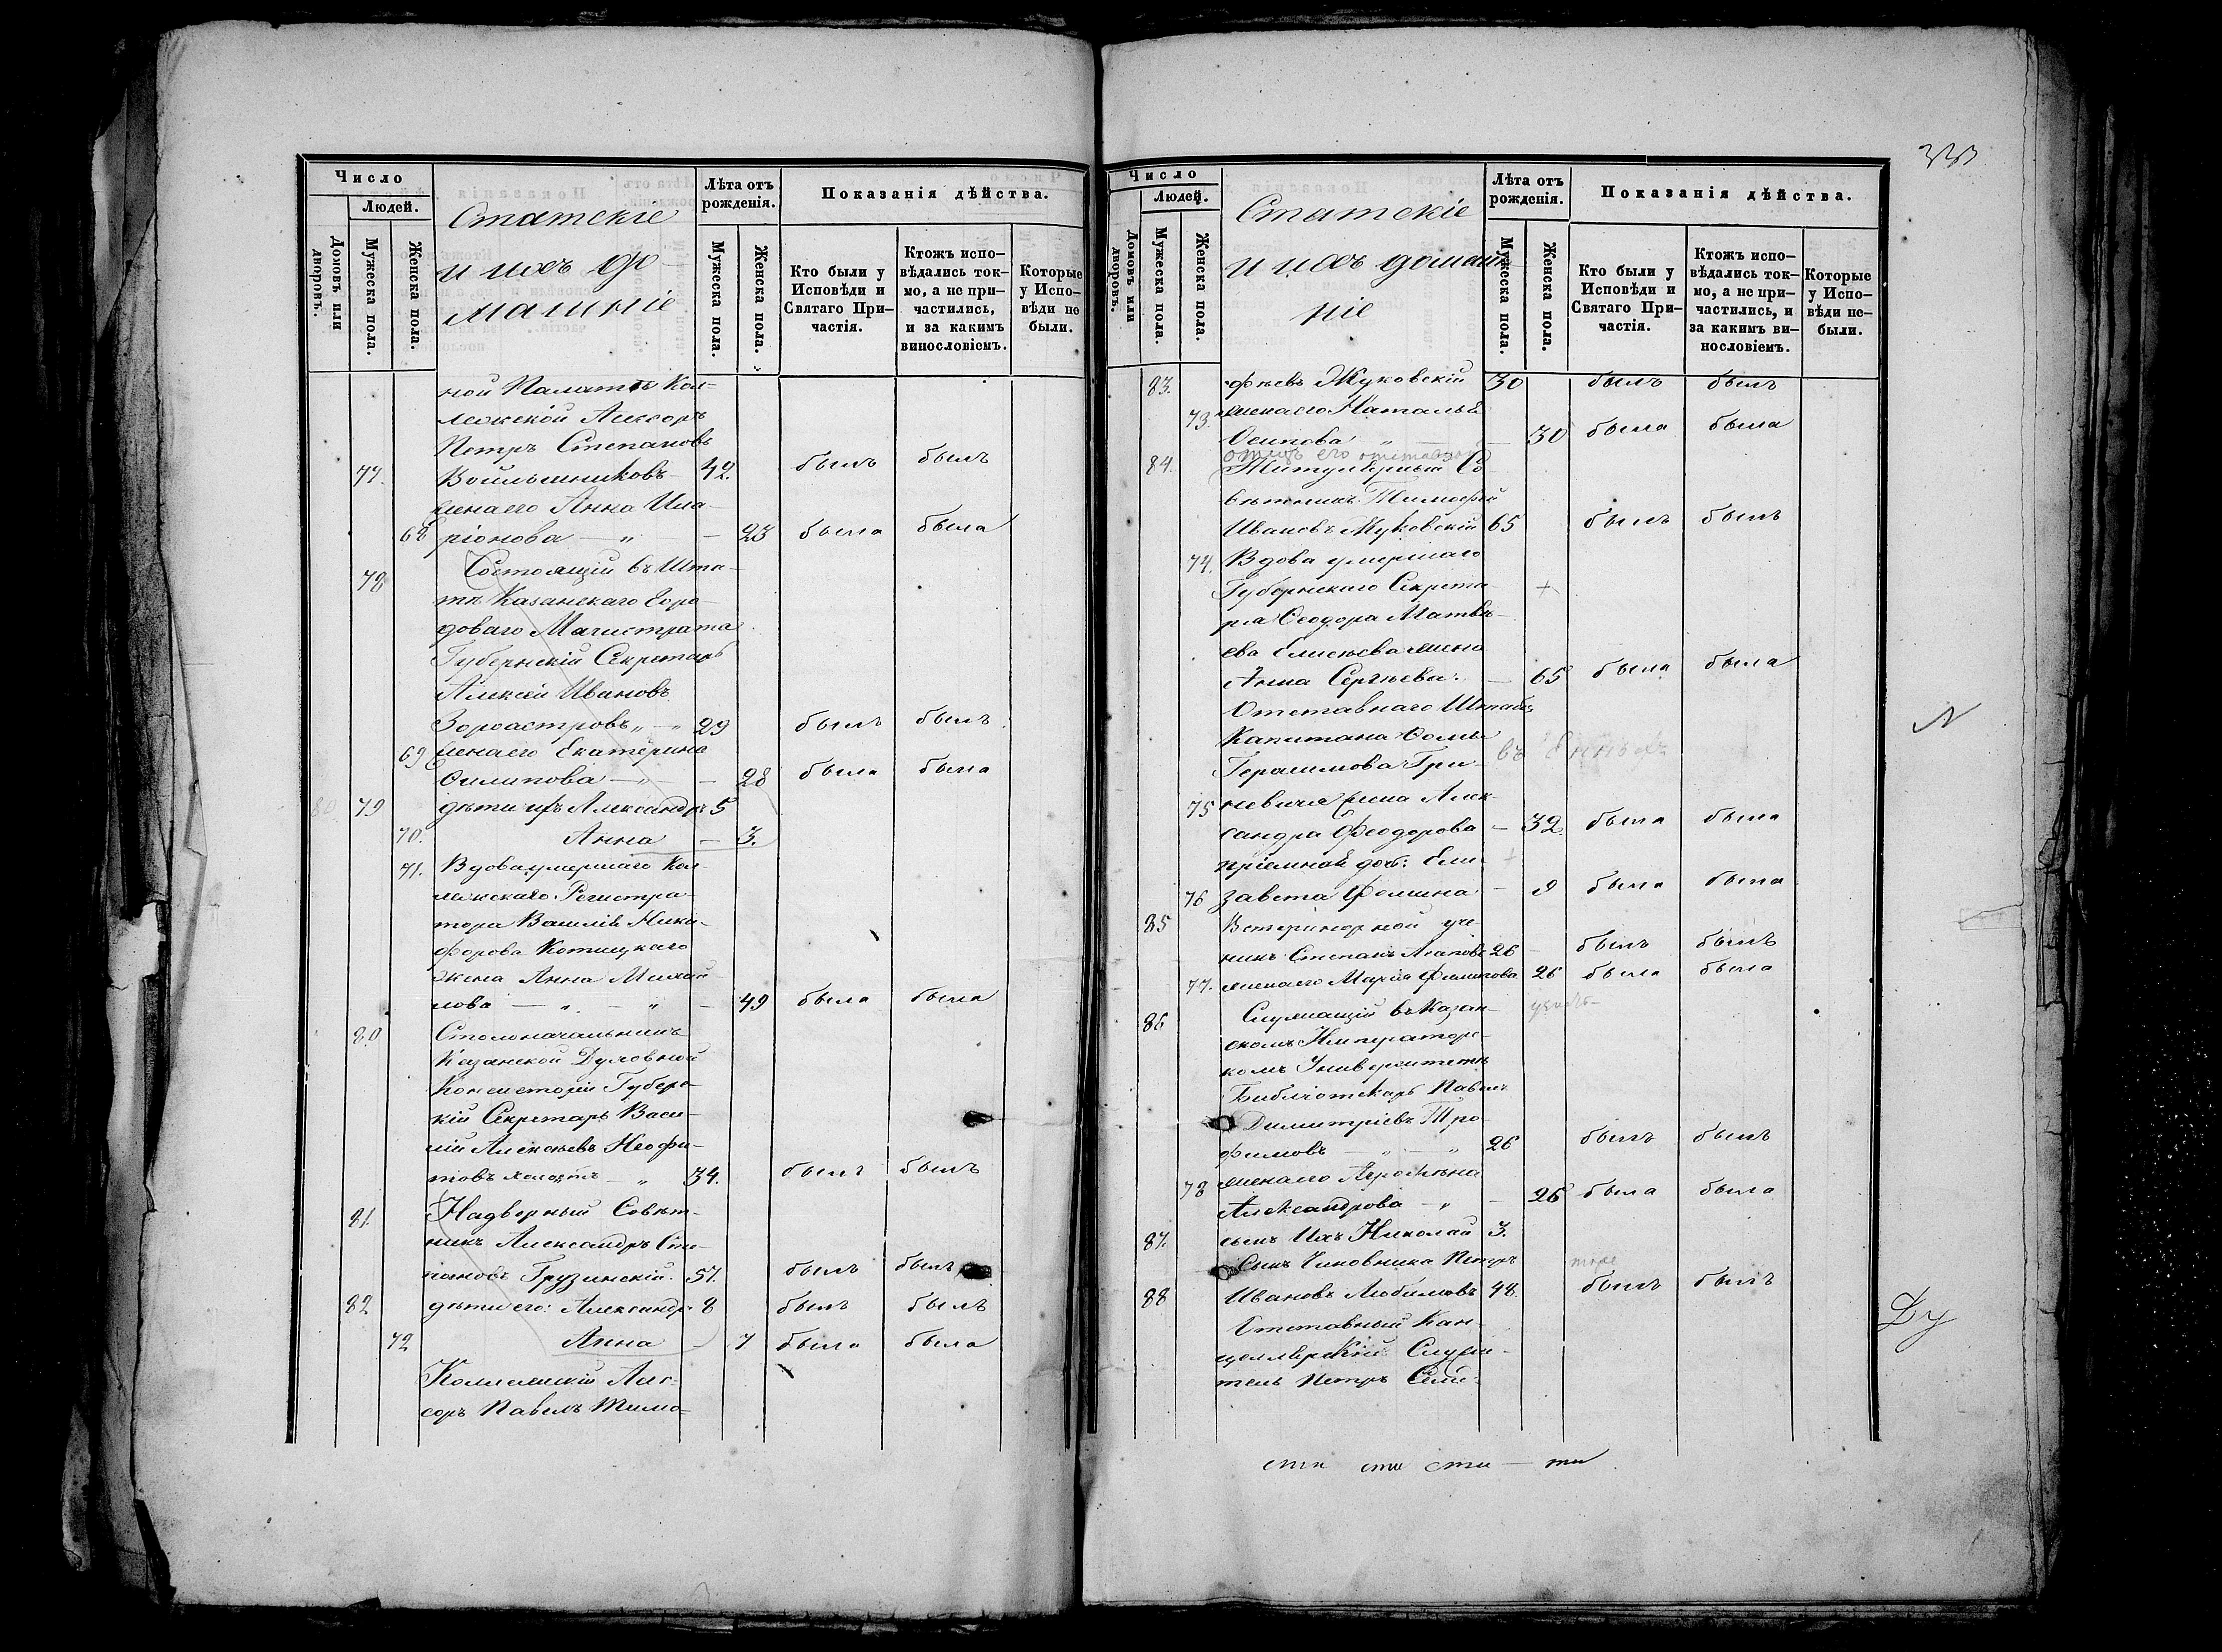 Число
Людей.
Домовъ или дворовъ.
Мужеска пола.
Женска пола.
Статскіе
и ихъ до-
машніе
Лѣта отъ рожденія.
Мужеска пола.
Женска пола.
Показанія дѣйства.
Кто были у Исповѣди и Святаго При-частія.
Ктожъ испо-вѣдались ток-мо, а не при-частились, и за какимъ винословіемъ.
Которые у Испо-вѣди не были.
ной Палаты Кол-
лежскій Ассесоръ
Петръ Степановъ
77. Войльшниковъ 42. былъ былъ
жена его Анна Ила-
68 ріонова — „ — 23 была была
Состоящій въ Шта-
78
тѣ Казанскаго Горо-
доваго Магистрата
Губернскій Секретарь
Алексѣй Ивановъ
Зороастровъ „ — „ 29 былъ былъ
69 жена его Екатерина
Филипова — „ — 28 была была
79 дѣти ихъ Александръ 5
70. Анна — 3.
71. Вдова умершаго Кол-
лежскаго Регистра-
тора Василія Ники-
форова Котицкаго
жена Анна Михай-
лова — „ — „ — 49 была была
80 Столоначальникъ
Казанской Духовной
Консисторіи Губерн-
кій Секретарь Васи-
лій Алексѣевъ Неофи-
товъ холостъ — „ 34. былъ былъ
81. Надворный Совѣт-
никъ Александръ Сте-
пановъ Грузинскій. 57. былъ былъ
82 дѣти его: Александръ 8 былъ былъ
72 Анна — 7 была была
Коллежскій Ассе-
соръ Павелъ Тимо-
333
Число
Людей.
Домовъ или дворовъ.
Мужеска пола.
Женска пола.
Статскіе
и ихъ домаш-
ніе
Лѣта отъ рожденія.
Мужеска пола.
Женска пола.
Показанія дѣйства.
Кто были у Исповѣди и Святаго При-частія.
Ктожъ испо-вѣдались ток-мо, а не при-частились, и за какимъ ви-нословіемъ.
Которые у Испо-вѣди не-были.
83. фѣевъ Жуковскій 30 былъ былъ
73. жена его Наталья
Осипова „ — — 30 была была
отецъ его отставной
84. Титулярный Со-
вѣтникъ Тимофей
Ивановъ Жуковскій 65 былъ былъ
74. Вдова умершаго
Губернскаго Секрета- +
ря Ѳеодора Матвѣ-
ева Елисѣева жена
Анна Сергѣева: — 65 была была
Отставнаго Штабсъ
Капитана Ѳомы
Герасимова Гри-
75 невича жена Алек-
сандра Ѳеодорова — 32. была была
пріемная дочь: Ели- +
76 завета Фомина — 9 была была
85 Ветеринарной уче-
никъ Степанъ Агаповъ 26 — былъ былъ
77. жена его Марія Филипова 26 была была
86 Служащій въ Казан-
скомъ Императорс-
комъ Университетѣ
Библіотекарь Павелъ
Димитріевъ Тро-
фимовъ — „ — „ 26 былъ былъ
78 жена его Агрофѣна
Александрова — „ — 26 была была
87. сынъ ихъ Николай 3.
Сынъ Чиновника Петръ
88 Ивановъ Любимовъ 48. былъ былъ
Отставный Кан-
целярскій Служи-
тель Петръ Семе-